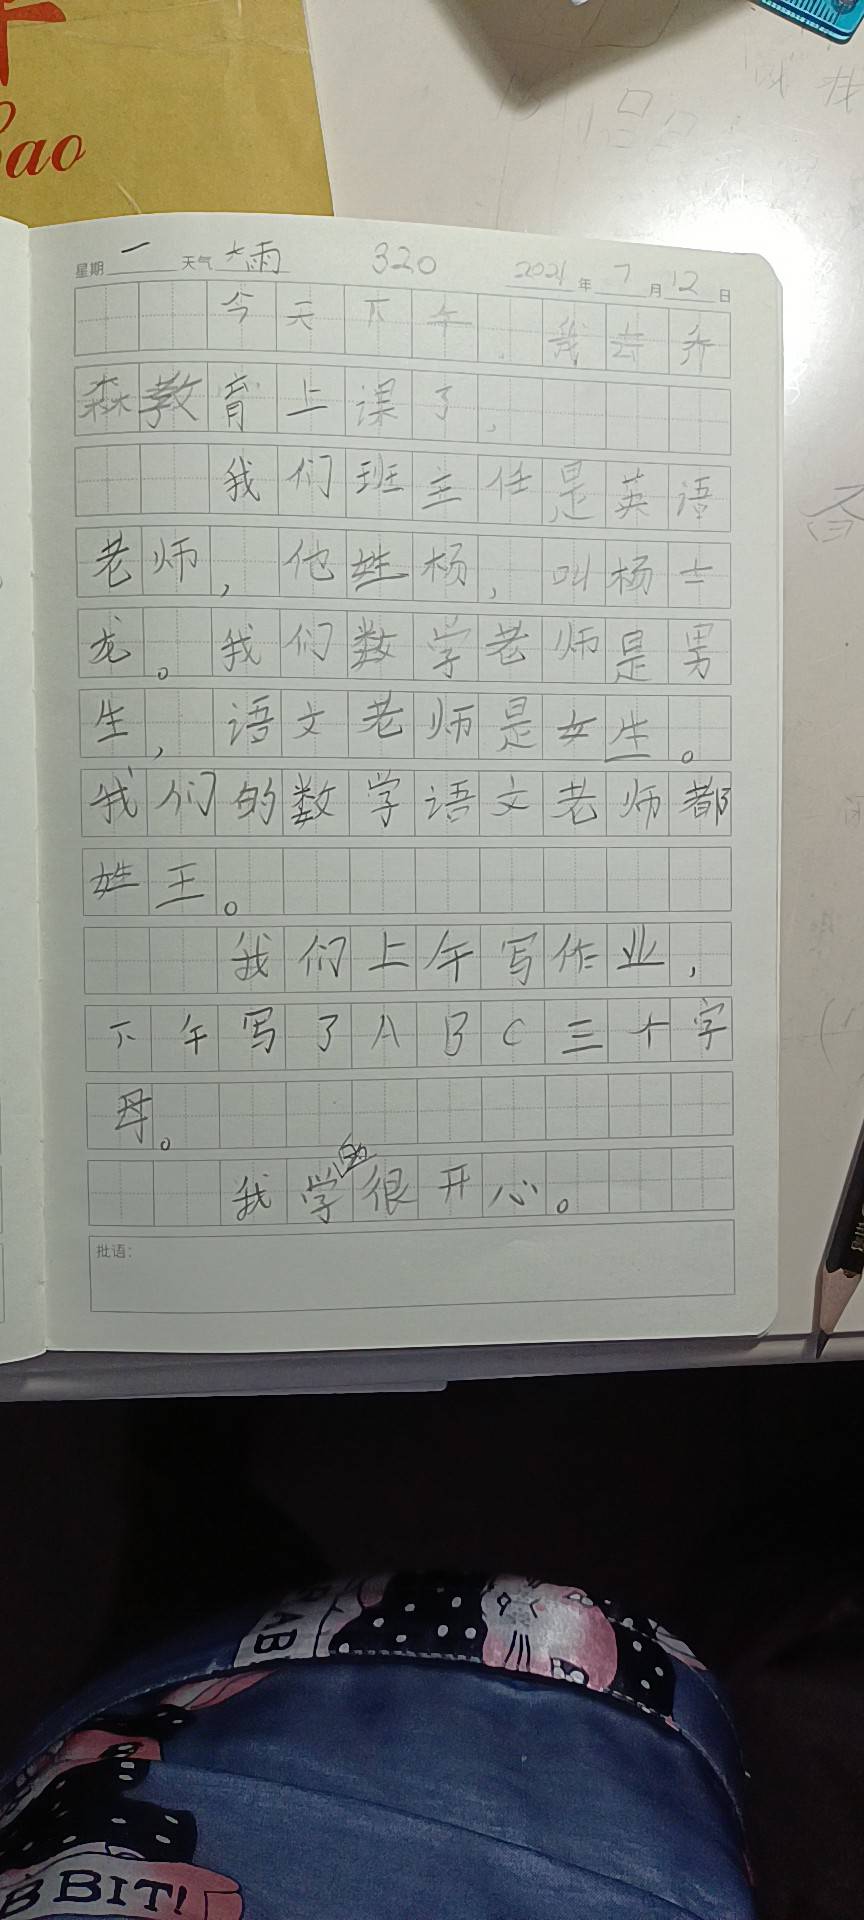 ao
星期 一 天气 大雨 320 2021 年 7 月 12 日
今天下午,我去乔
森教育上课了,
我们班主任是英语
老师,他姓杨,叫杨士
龙。我们数学老师是男
生,语文老师是女生。
我们的数学语文老师都
姓王。
我们上午写作业,
下午写了ABC三个字
母。
我学的很开心。
批语:
RAB
BBIT!